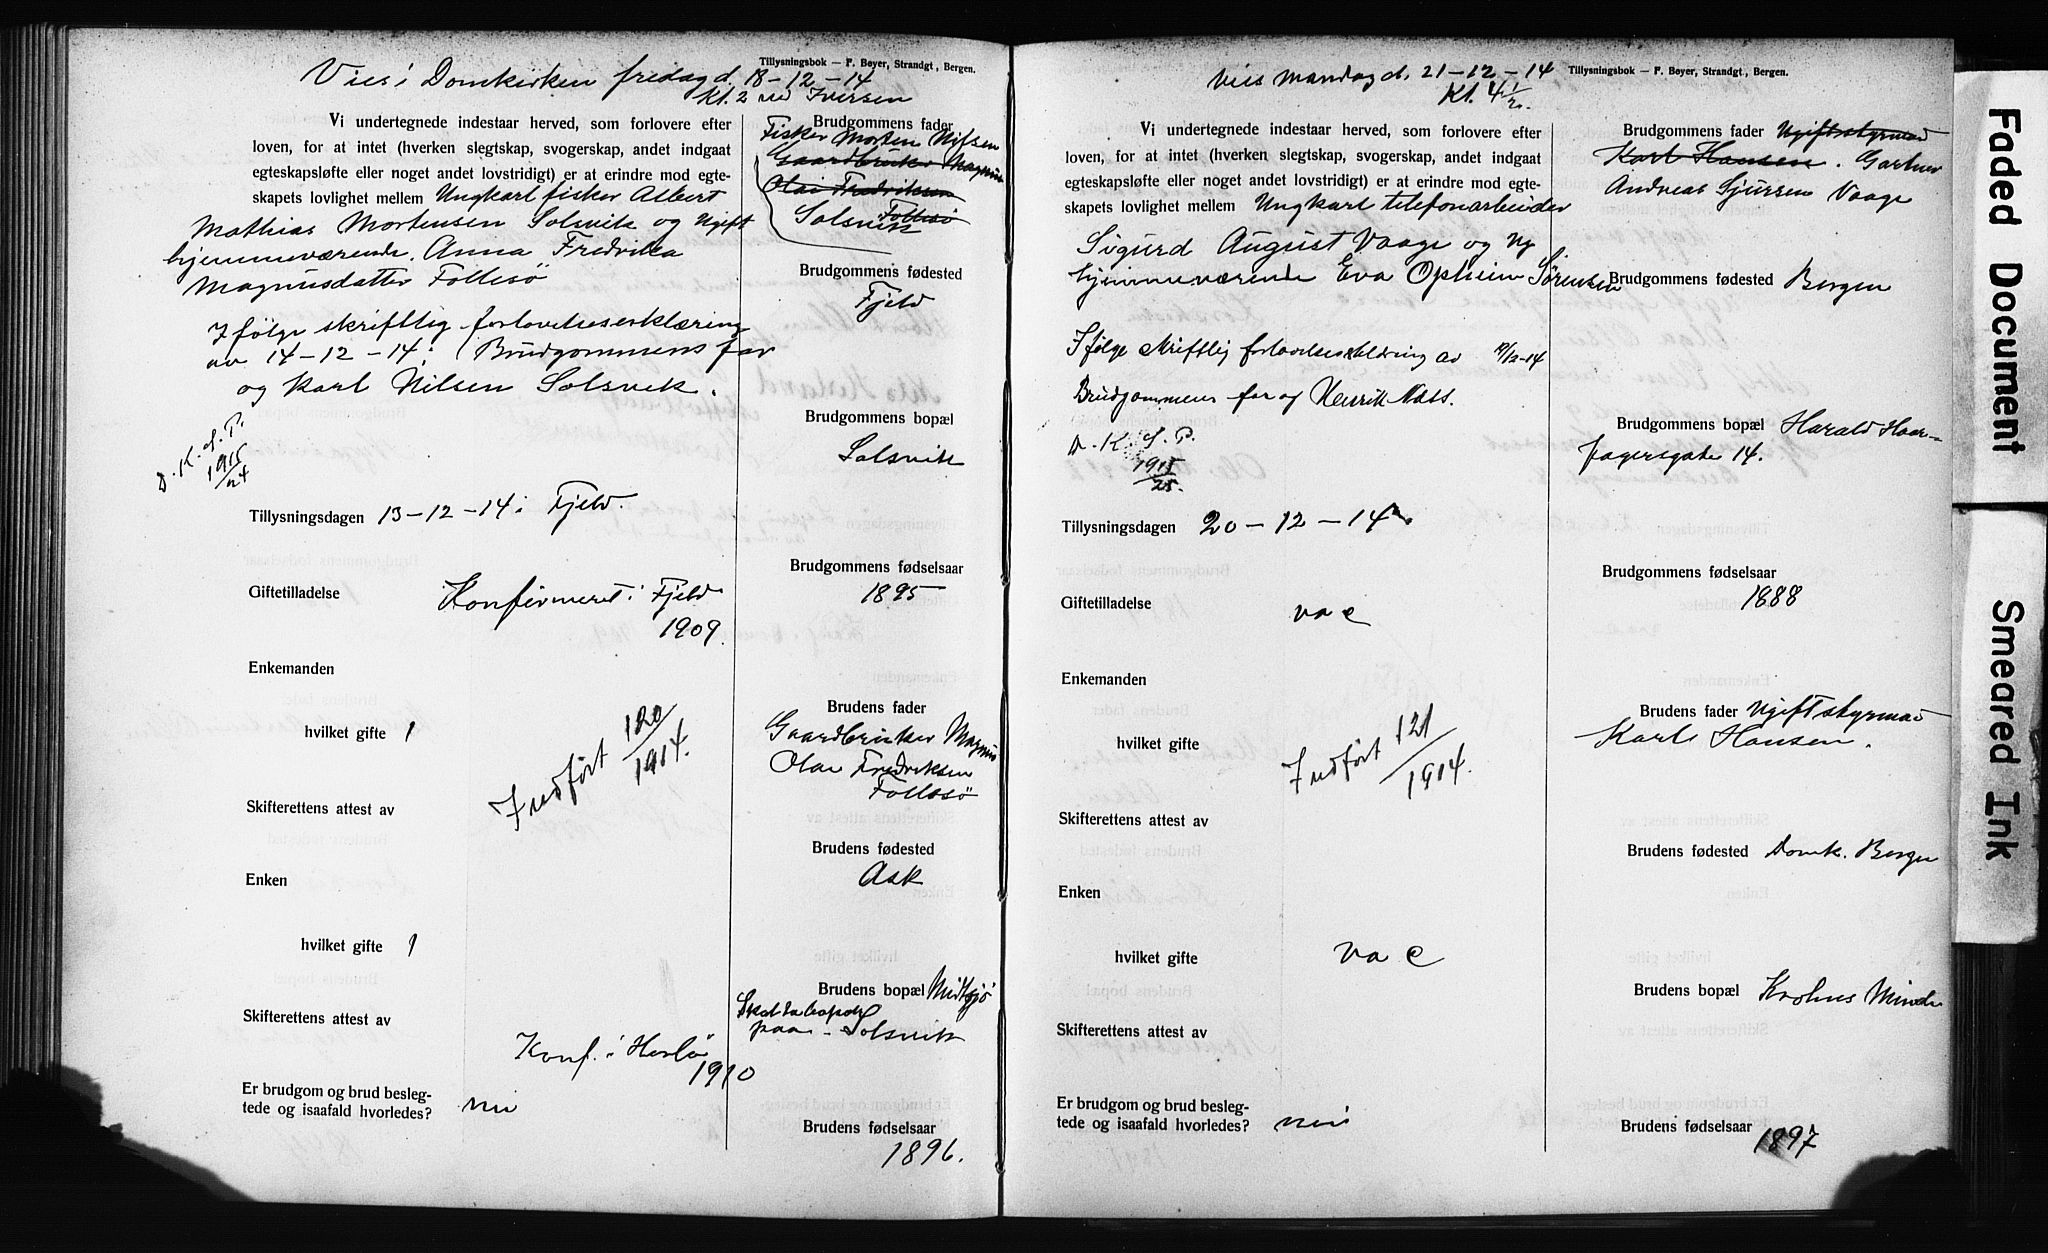 Tillysningsbok — F. Bøyer, Strandgt., Bergen.
Vies i Domkirken fredag d. 18-12-14
Kl. 2 ved Iversen
Vi undertegnede indestaar herved, som forlovere efter
loven, for at intet (hverken slegtskap, svogerskap, andet indgaat
egteskapsløfte eller noget andet lovstridigt) er at erindre mod egte-
skapets lovlighet mellem Ungkarl fisker Albert
Mathias Mortensen Solsvik og Ugift
hjemmeværende Anna Fredrika
Magnusdatter Follesø
Ifølge skriftlig forlovelseserklæring
av 14-12-14: Brudgommens far
og Karl Nilsen Solsvik.
D. K. S. P.
1915/24
Tillysningsdagen 13-12-14 i Fjeld.
Giftetilladelse Konfirmeret i Fjeld
1909
Enkemanden
hvilket gifte 1
Indført 120/1914.
Skifterettens attest av
Enken
hvilket gifte 1
Skifterettens attest av
Konf. i Herlø
1910
Er brudgom og brud besleg-
tede og isaafald hvorledes? nei
Brudgommens fader
Fisker Morten Nilsen
Gaardbruker Magnus
Olai Fredriksen
Follesø
Solsvik
Brudgommens fødested
Fjeld
Brudgommens bopæl
Solsvik
Brudgommens fødselsaar
1895
Brudens fader
Gaardbruker Magnus
Olai Fredriksen
Follesø
Brudens fødested
Ask
Brudens bopæl
Skal ta bopæl
paa Solsvik
Brudens fødselsaar
1896.
Tillysningsbok — F. Bøyer, Strandgt., Bergen.
Vies Mandag d. 21-12-14
Kl. 4½.
Vi undertegnede indestaar herved, som forlovere efter
loven, for at intet (hverken slegtskap, svogerskap, andet indgaat
egteskapsløfte eller noget andet lovstridigt) er at erindre mod egte-
skapets lovlighet mellem Ungkarl telefonarbeider
Sigurd August Vaage og Ug
hjemmeværende Eva Opheim Sørensen
Ifølge skriftlig forlovelseserklæring av /12-14
Brudgommens far og Henrik Næss.
D. K. S. P.
1915/25.
Tillysningsdagen 20-12-14
Giftetilladelse vac
Enkemanden
hvilket gifte
Indført 121/1914.
Skifterettens attest av
Enken
hvilket gifte vac
Skifterettens attest av
Er brudgom og brud besleg-
tede og isaafald hvorledes? nei
Brudgommens fader Ugift styrmand
Karl Hansen. Gartner
Andreas Sjursen Vaage
Brudgommens fødested Bergen
Brudgommens bopæl Harald Haar-
fagersgate 14.
Brudgommens fødselsaar
1888
Brudens fader Ugift styrmand
Karl Hansen.
Brudens fødested Domk. Bergen
Brudens bopæl Krohns Minde
Brudens fødselsaar
1897
Faded Document
Smeared Ink